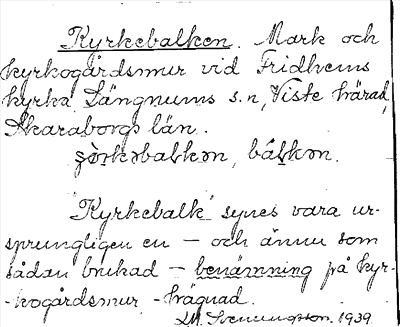 Kyrkebalken. Mark och
kyrkogårdsmur vid Fridhems
kyrka, Längnums s.n, Viste härad,
Skaraborgs län.
bálkən.
"Kyrkebalk" synes vara ur-
sprungligen en – och ännu som
sådan brukad – benämning på kyr-
-kogårdsmur -hägnad.
Svenungsson. 1939